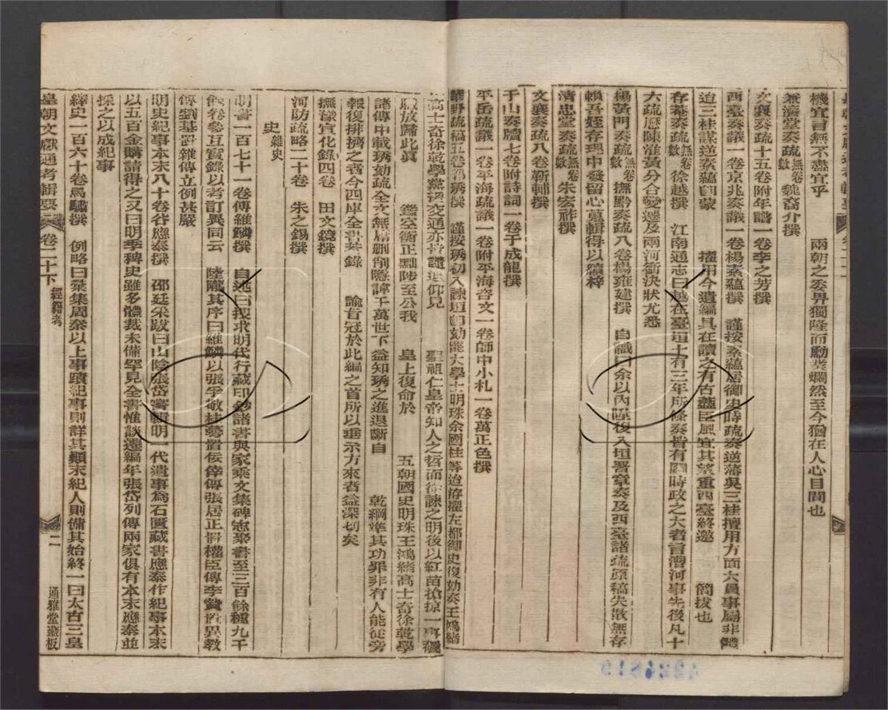 機宜言無不盡宜乎　兩朝之委畀獨隆而勳業爛然至今猶在人心目間也
兼濟堂奏疏無卷數魏裔介撰
文襄奏疏十五卷附年譜一卷李之芳撰
西臺奏議一卷京兆奏議一卷楊素蘊撰　謹按素蘊居御史時疏奏逆藩吳三桂擅用方面大員事屬非體
迨三桂謀逆素蘊以蒙　擢用今遺編具在讀之有古藎臣風宜其望重西臺終邀　簡拔也
存菴奏疏無卷數徐越撰　江南通志曰越在臺垣十有三年所條奏皆有關時政之大者言漕河事先後凡十
六疏歷陳淮黃分合變遷及兩河衝決狀尤悉
楊黃門奏疏無卷數撫黔奏疏八卷楊雍建撰　自識曰余以內陞復入垣署章奏及西臺諸疏原稿失散無存
賴吾姪存理中發留心蒐輯得以續梓
清忠堂奏疏無卷數朱宏祚撰
文襄奏疏八卷靳輔撰
于山奏牘七卷附詩詞一卷于成龍撰
平岳疏議一卷平海疏議一卷附平海咨文一卷師中小札一卷萬正色撰
華野疏稿五卷郭琇撰　謹按琇初入諫垣即劾罷大學士明珠余國柱等迨洊擢左都御史復劾奏王鴻緒
高士奇徐乾學黨護交通亦皆譴退仰見　聖祖仁皇帝知人之哲而從諫之明後以紅苗搶掠一事琇
設放歸此眞　鑑空衡正黜陟至公我　皇上復命於　五朝國史明珠王鴻緒高士奇徐乾學
諸傳中載琇劾疏全文無庸刪削隱諱千萬世下益知琇之進退斷自　乾綱準其功罪非有人能從旁
報復排擠之者今四庫全書並錄　諭旨冠於此編之首所以垂示方來者益深切矣
撫豫宣化錄四卷　田文鏡撰
河防疏略二十卷　朱之錫撰
史雜史
明書一百七十一卷傅維鱗撰　自述曰搜求明代行藏印鈔諸書與家乘文集碑志聚書至三百餘種九千
餘卷參互實錄以考訂異同云　陸隴其序曰維鱗以張孚敬桂萼置佞倖傳張居正置權臣傳李贄置異教
傳劉基置雜傳立例甚嚴
明史紀事本末八十卷谷應泰撰　邵廷采跋曰山陰張岱嘗輯明一代遺事爲石匱藏書應泰作紀事本末
以五百金購請得之又曰明季稗史雖多體裁未備罕見全書惟談遷編年張岱列傳兩家俱有本末應泰並
採之以成紀事
繹史一百六十卷馬驌撰　例略曰彙集周秦以上事蹟紀事則詳其顛末紀人則備其始終一曰太古三皇
皇朝文獻通考輯要　卷二十下　經籍考　二　通雅堂邀板